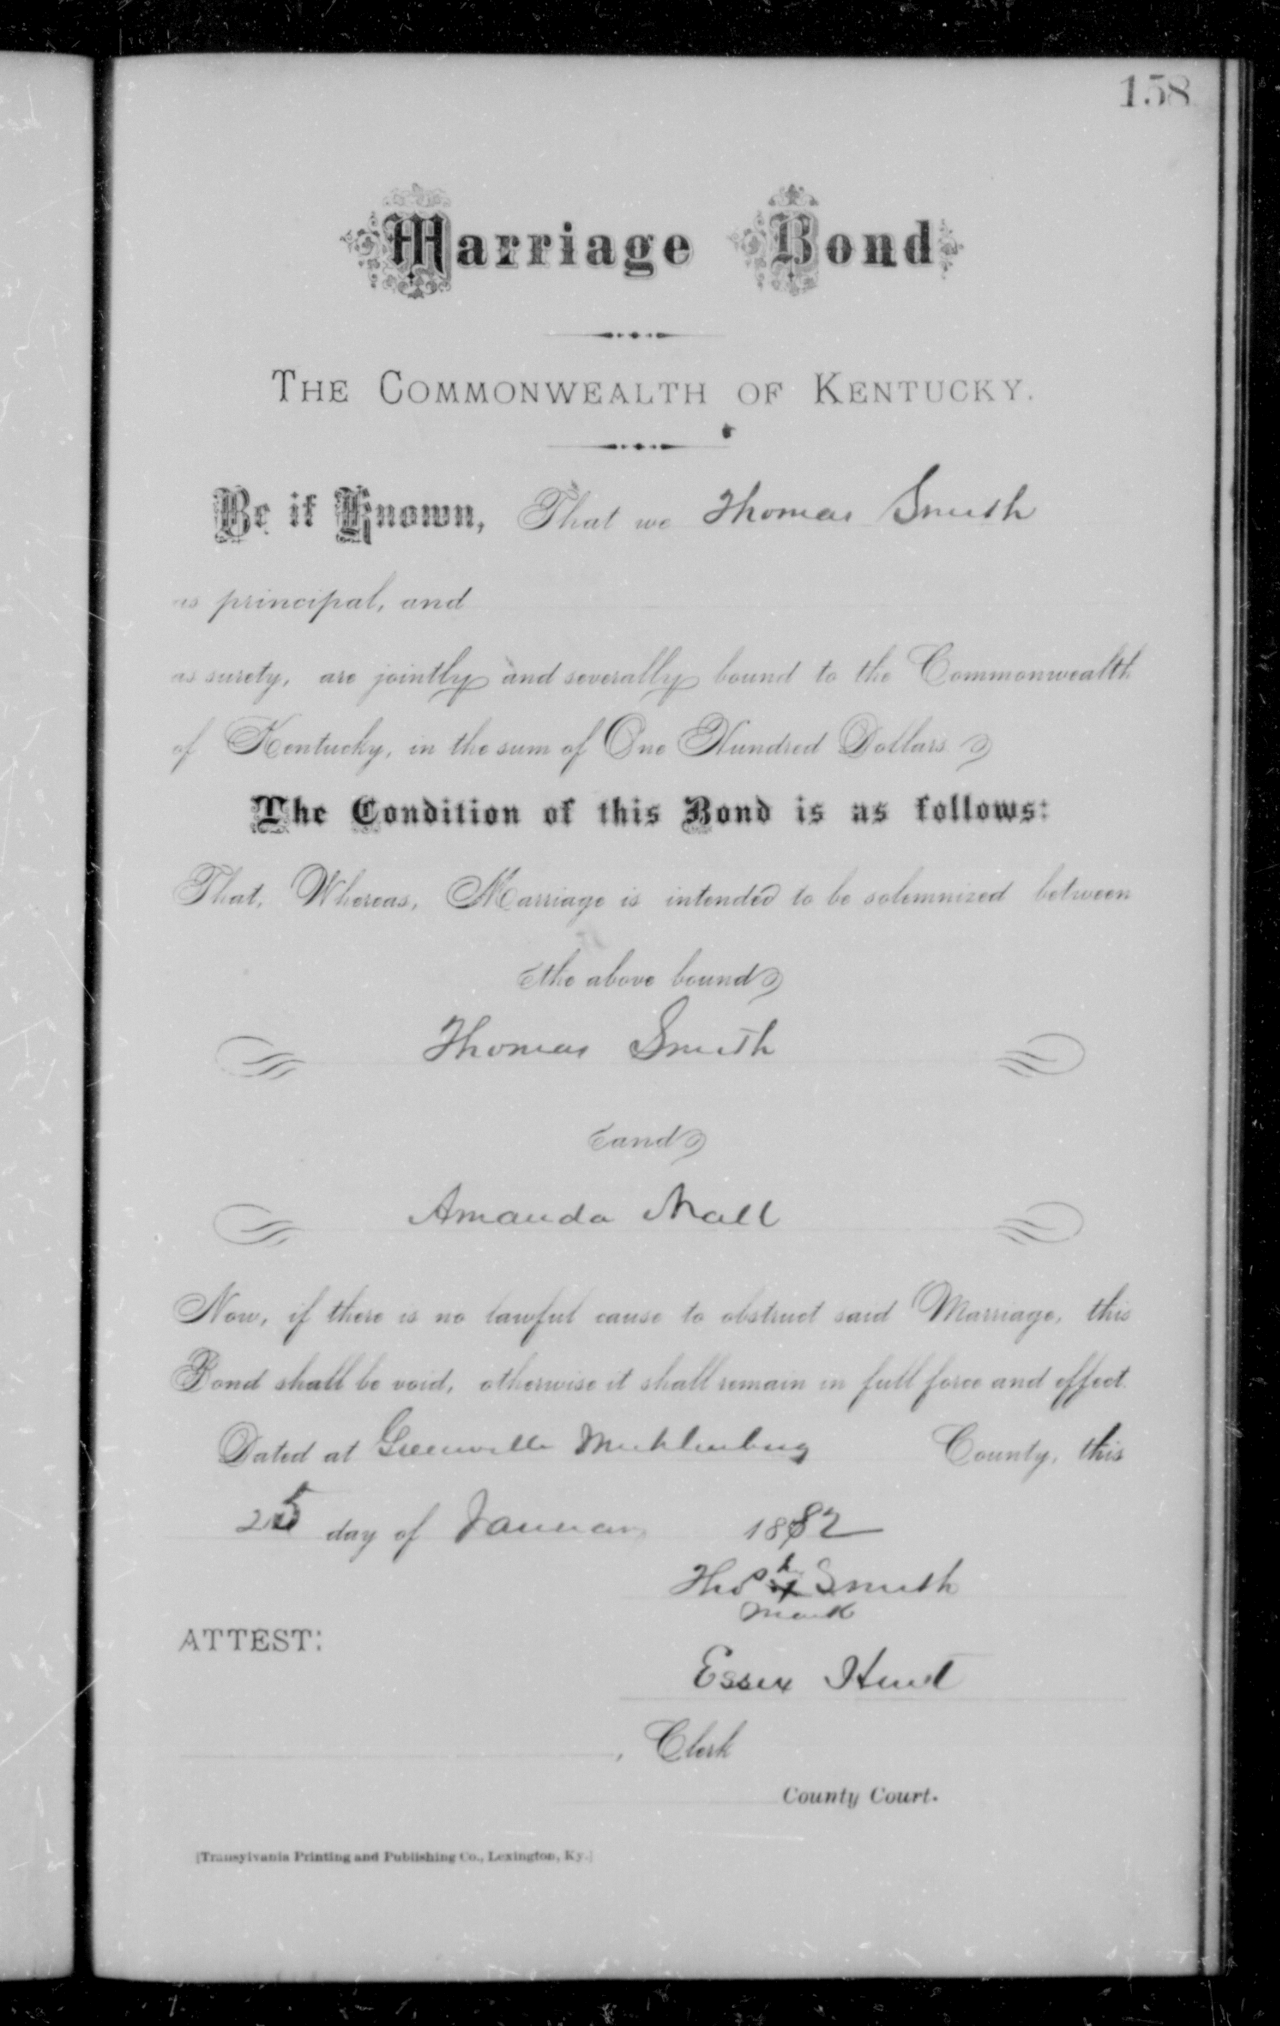 158
Marriage Bond
THE COMMONWEALTH OF KENTUCKY.
Be it Known, That we Thomas Smith
as principal, and
as surety, are jointly and severally bound to the Commonwealth
of Kentucky, in the sum of One Hundred Dollars.
The Condition of this Bond is as follows:
That, Whereas, Marriage is intended to be solemnized between
the above bound
Thomas Smith
and
Amanda Nall
Now, if there is no lawful cause to obstruct said Marriage, this
Bond shall be void, otherwise it shall remain in full force and effect.
Dated at Greenville Muhlenburg County, this
25 day of January 1882
Thos h x Smith
mark
ATTEST:
Essex Hunt
, Clerk
County Court.
[Transylvania Printing and Publishing Co., Lexington, Ky.]